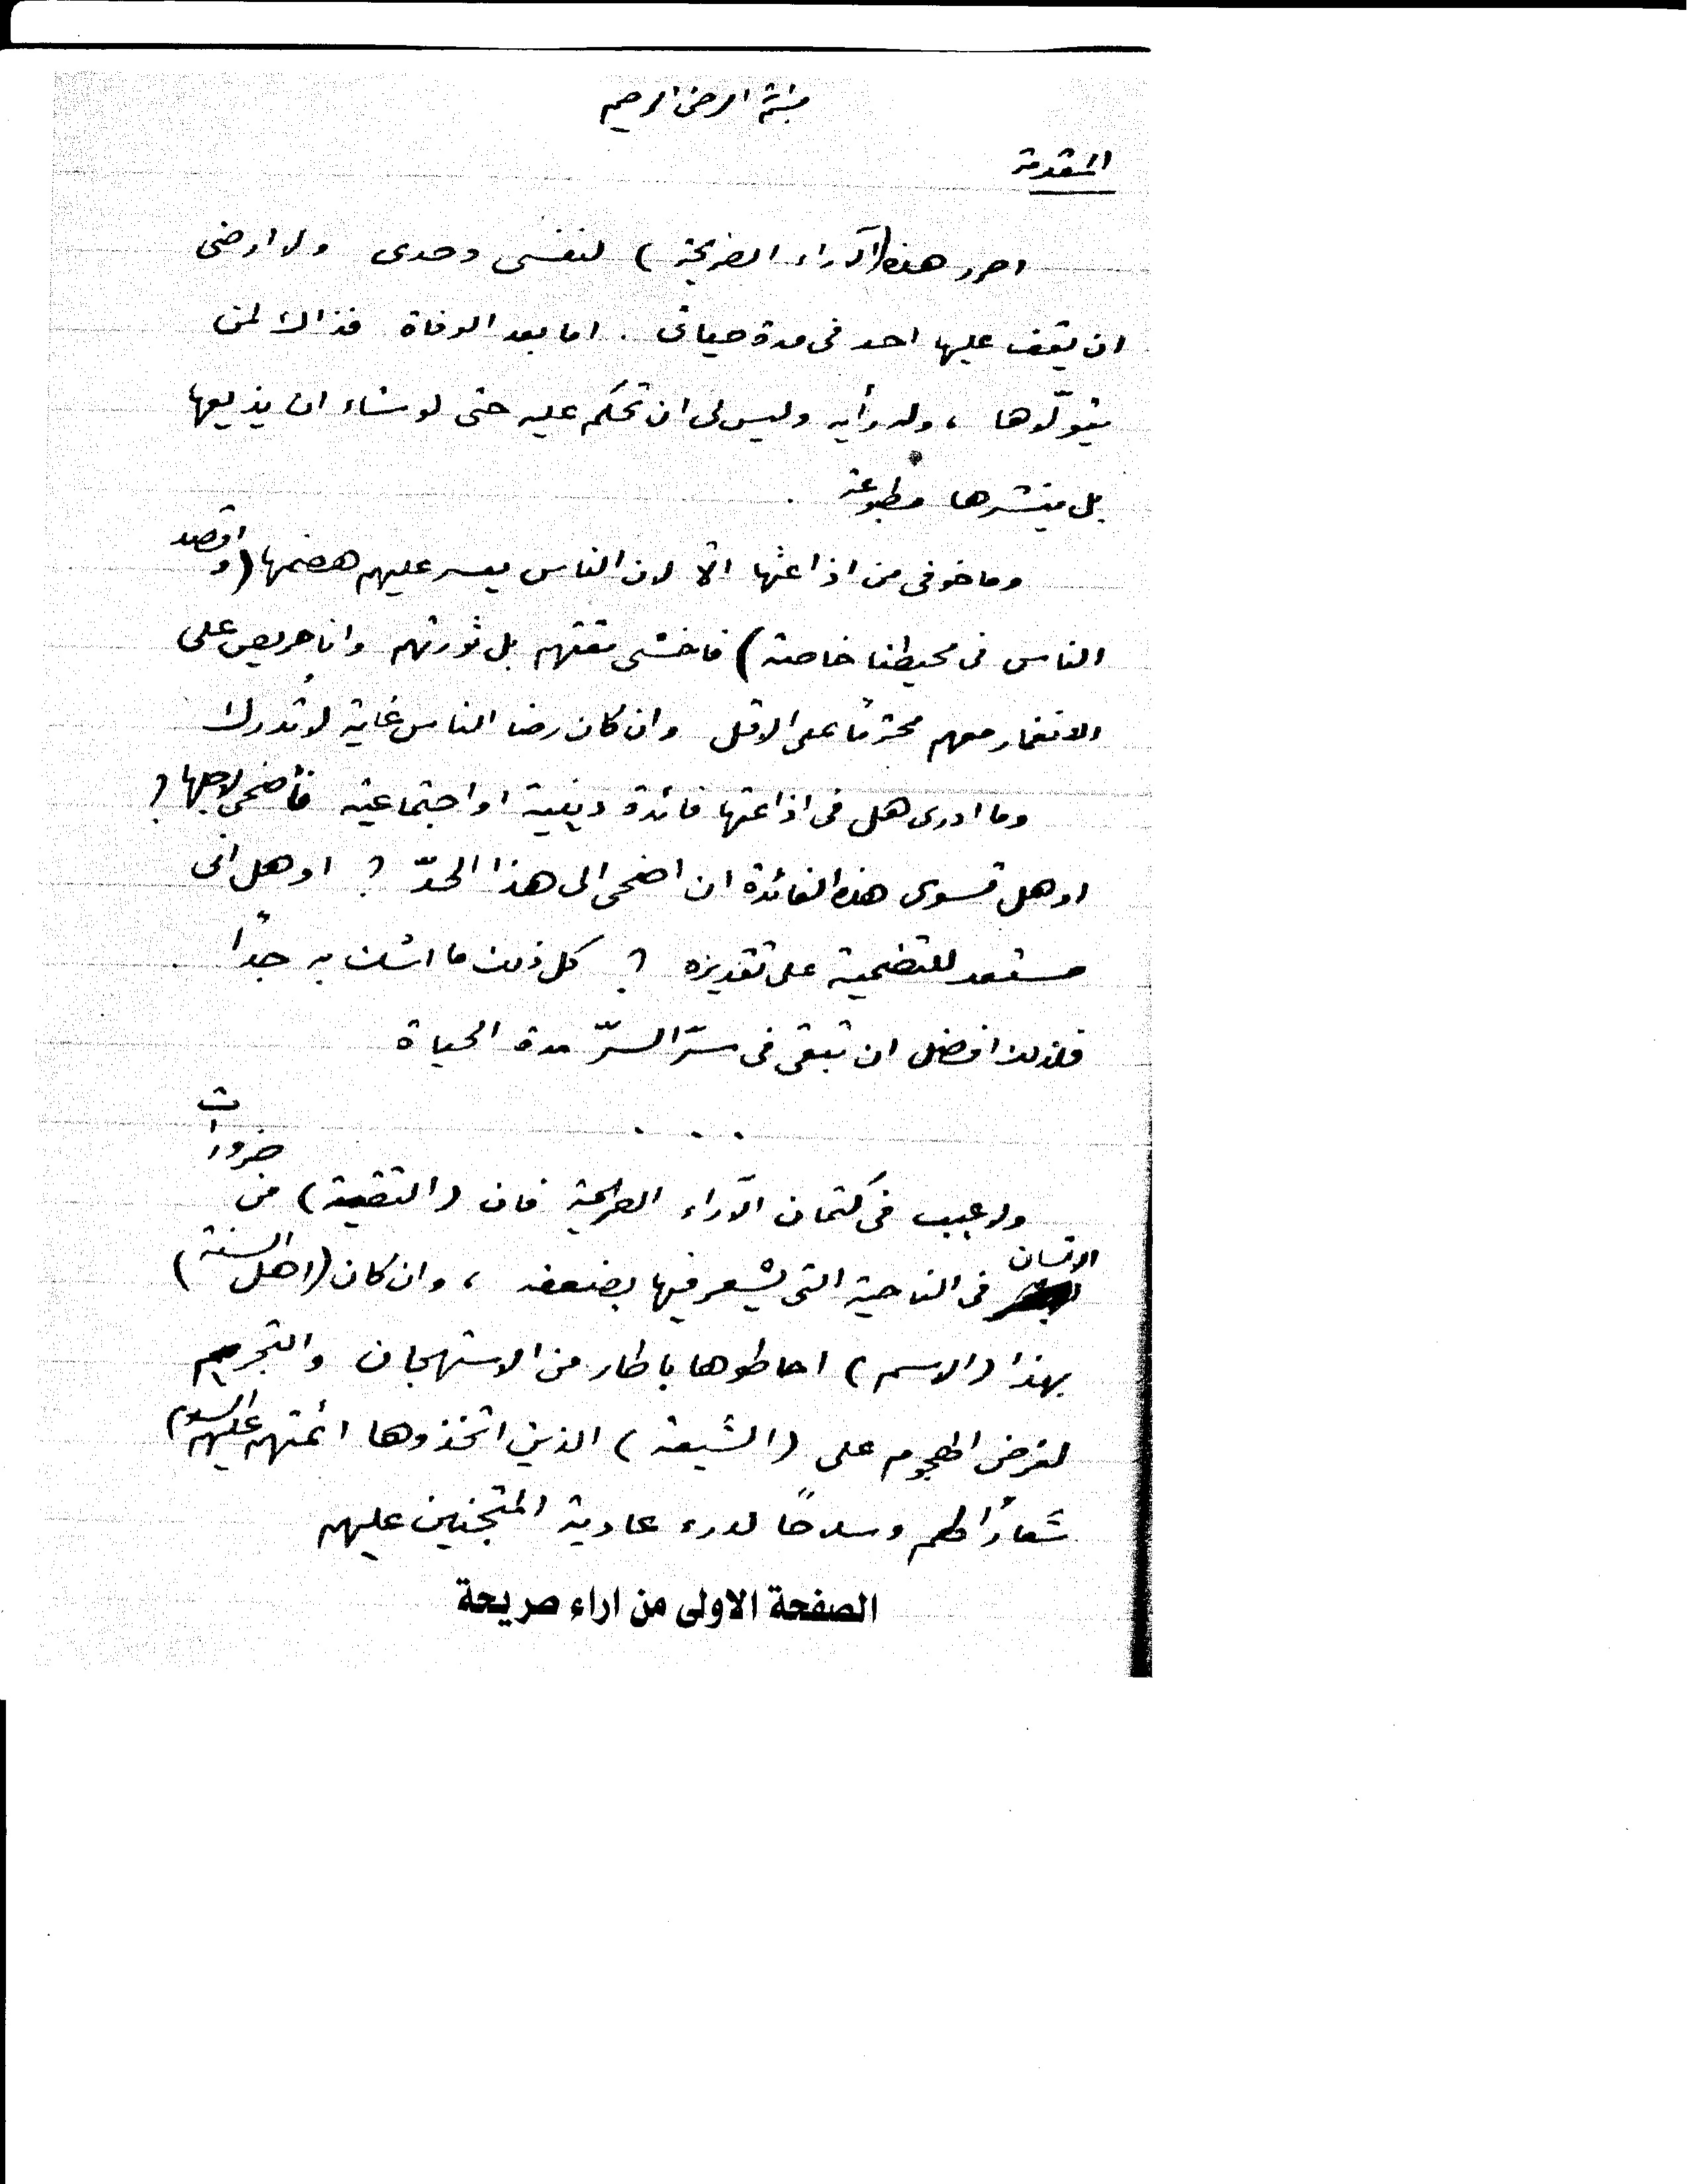 بسم الله الرحمن الرحيم
المقدمة
احرر هذه (الآراء الصريحة) لنفسي وحدي ولا ارضى
ان يقف عليها احد في مدة حياتي . اما بعد الوفاة فذاك لمن
يتولّاها ، وله رأيه وليس لي ان تحكم عليه حتى لو شاء ان يذيعها
بل ينشرها مطبوعة .
وما خوفي من اذاعتها الّا لان الناس يعسر عليهم هضمها (واقصد
الناس في محيطنا خاصة) فاخشى مقتهم بل ثورتهم وانا حريص على
الانغمار معهم محترمًا على الاقل وان كان رضا الناس غاية لا تُدرك
وما ادري هل في اذاعتها فائدة دينية او اجتماعية فأضحي لاجلها ؟
او هل تسوى هذه الفائدة ان اضحي الى هذا الحدّ ؟ او هل اني
مستعد للتضحية على تقديره ؟ كل ذلك ما اشك به جدًا .
فلذلك افضل ان تبقى في سرّ السرّ مدة الحياة
. . .
ولا عيب في كتمان الآراء الصريحة فان (التقية) من ضرورات
الانسان في الناحية التي يشعر فيها بضعفه ، وان كان (اهل السنة)
بهذا (الاسم) احاطوها باطار من الاستهجان والتجريم
لغرض الهجوم على (الشيعة) الذين اتخذوها ائمتهم عليهم السلام
شعارًا لهم وسلاحًا لدرء عادية المتجنين عليهم
الصفحة الاولى من اراء صريحة